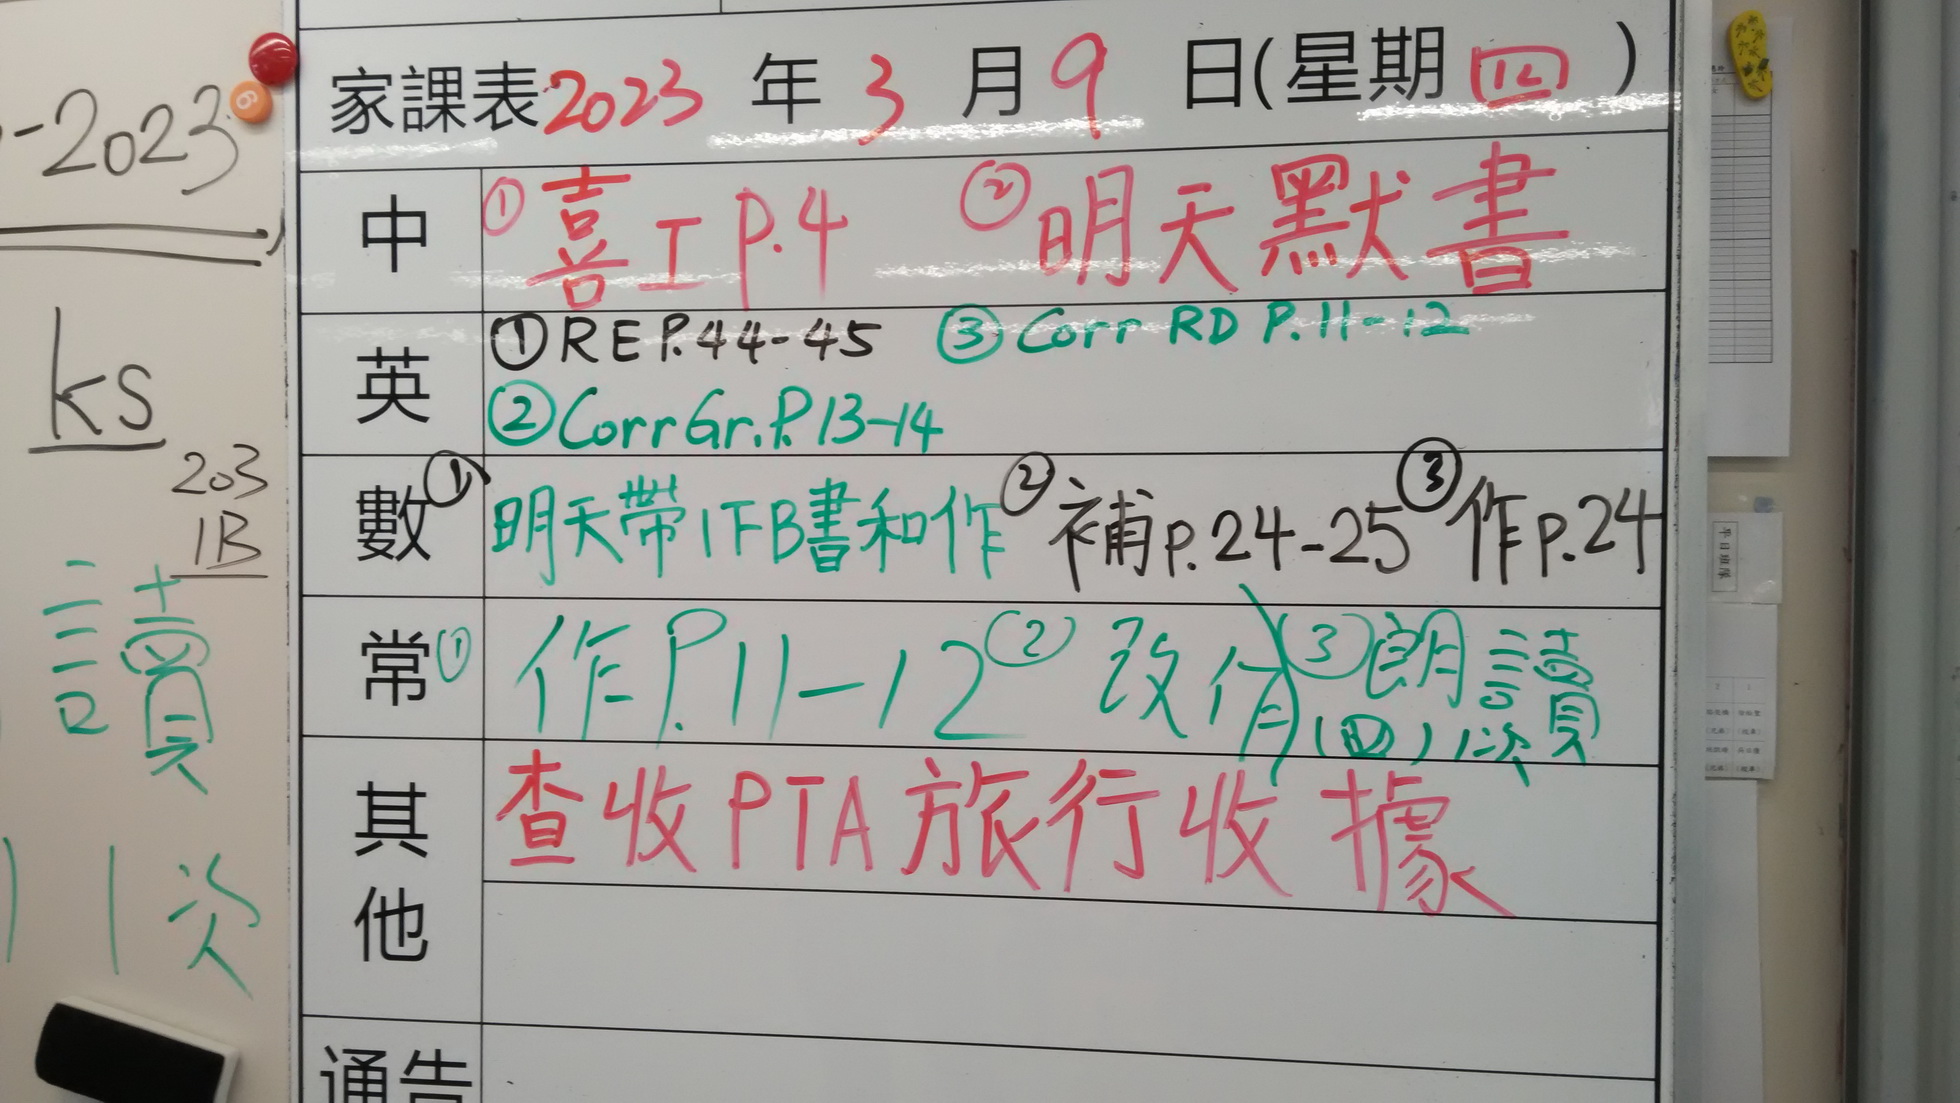 -2023
ks
203
1B
讀
1次
家課表2023年3月9日(星期四)
中 ①喜工P.4 ②明天默書
英 ①RE P.44-45 ③Corr RD P.11-12
②Corr Gr. P.13-14
數 ①明天帶1FB書和作 ②補p.24-25 ③作p.24
常 ①作P.11-12 ②改作 ③朗讀
(四)1次
其他 查收PTA旅行收據
通告
平日班隊